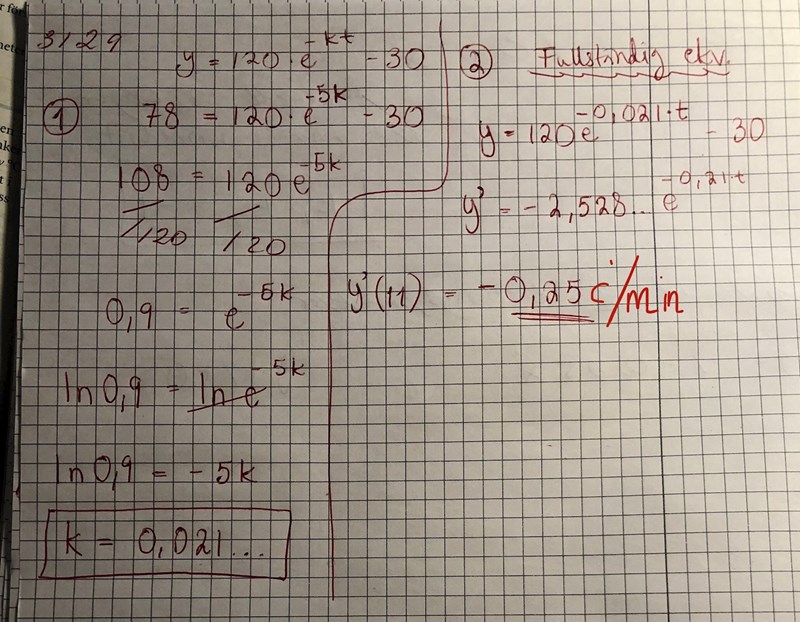 3129
y = 120 · e^-kt - 30
① 78 = 120 · e^-5k - 30
108 = 120 e^-5k
/120 /120
0,9 = e^-5k
ln 0,9 = ln e^-5k
ln 0,9 = - 5k
k = 0,021...
② Fullständig ekv.
y = 120 e^-0,021·t - 30
y' = - 2,528... e^-0,21·t
y'(11) = - 0,25 c°/min